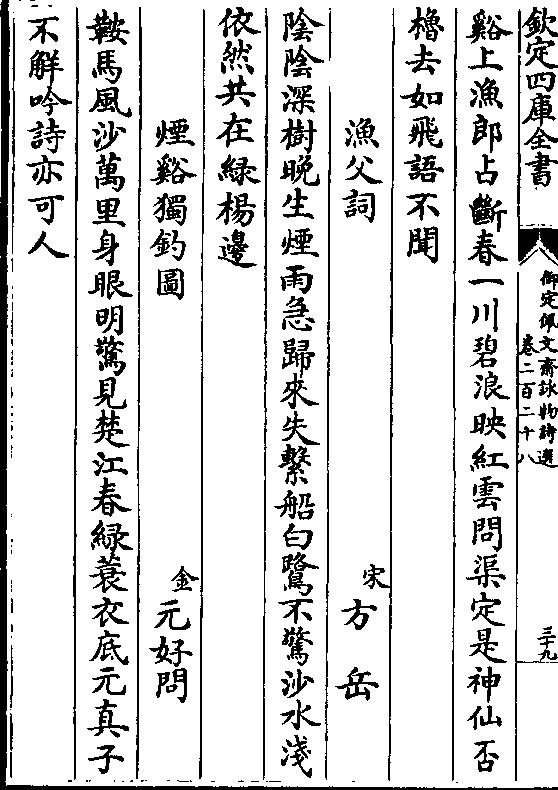 欽定四庫全書
御定佩文齋詠物詩選
卷二百二十八
三十九
谿上漁郎占斷春一川碧浪映紅雲問渠定是神仙否
櫓去如飛語不聞
漁父詞
宋方岳
陰陰深樹晚生煙雨急歸來失繫船白鷺不驚沙水淺
依然共在綠楊邊
煙谿獨釣圖
金元好問
鞍馬風沙萬里身眼明驚見楚江春綠蓑衣底元真子
不解吟詩亦可人